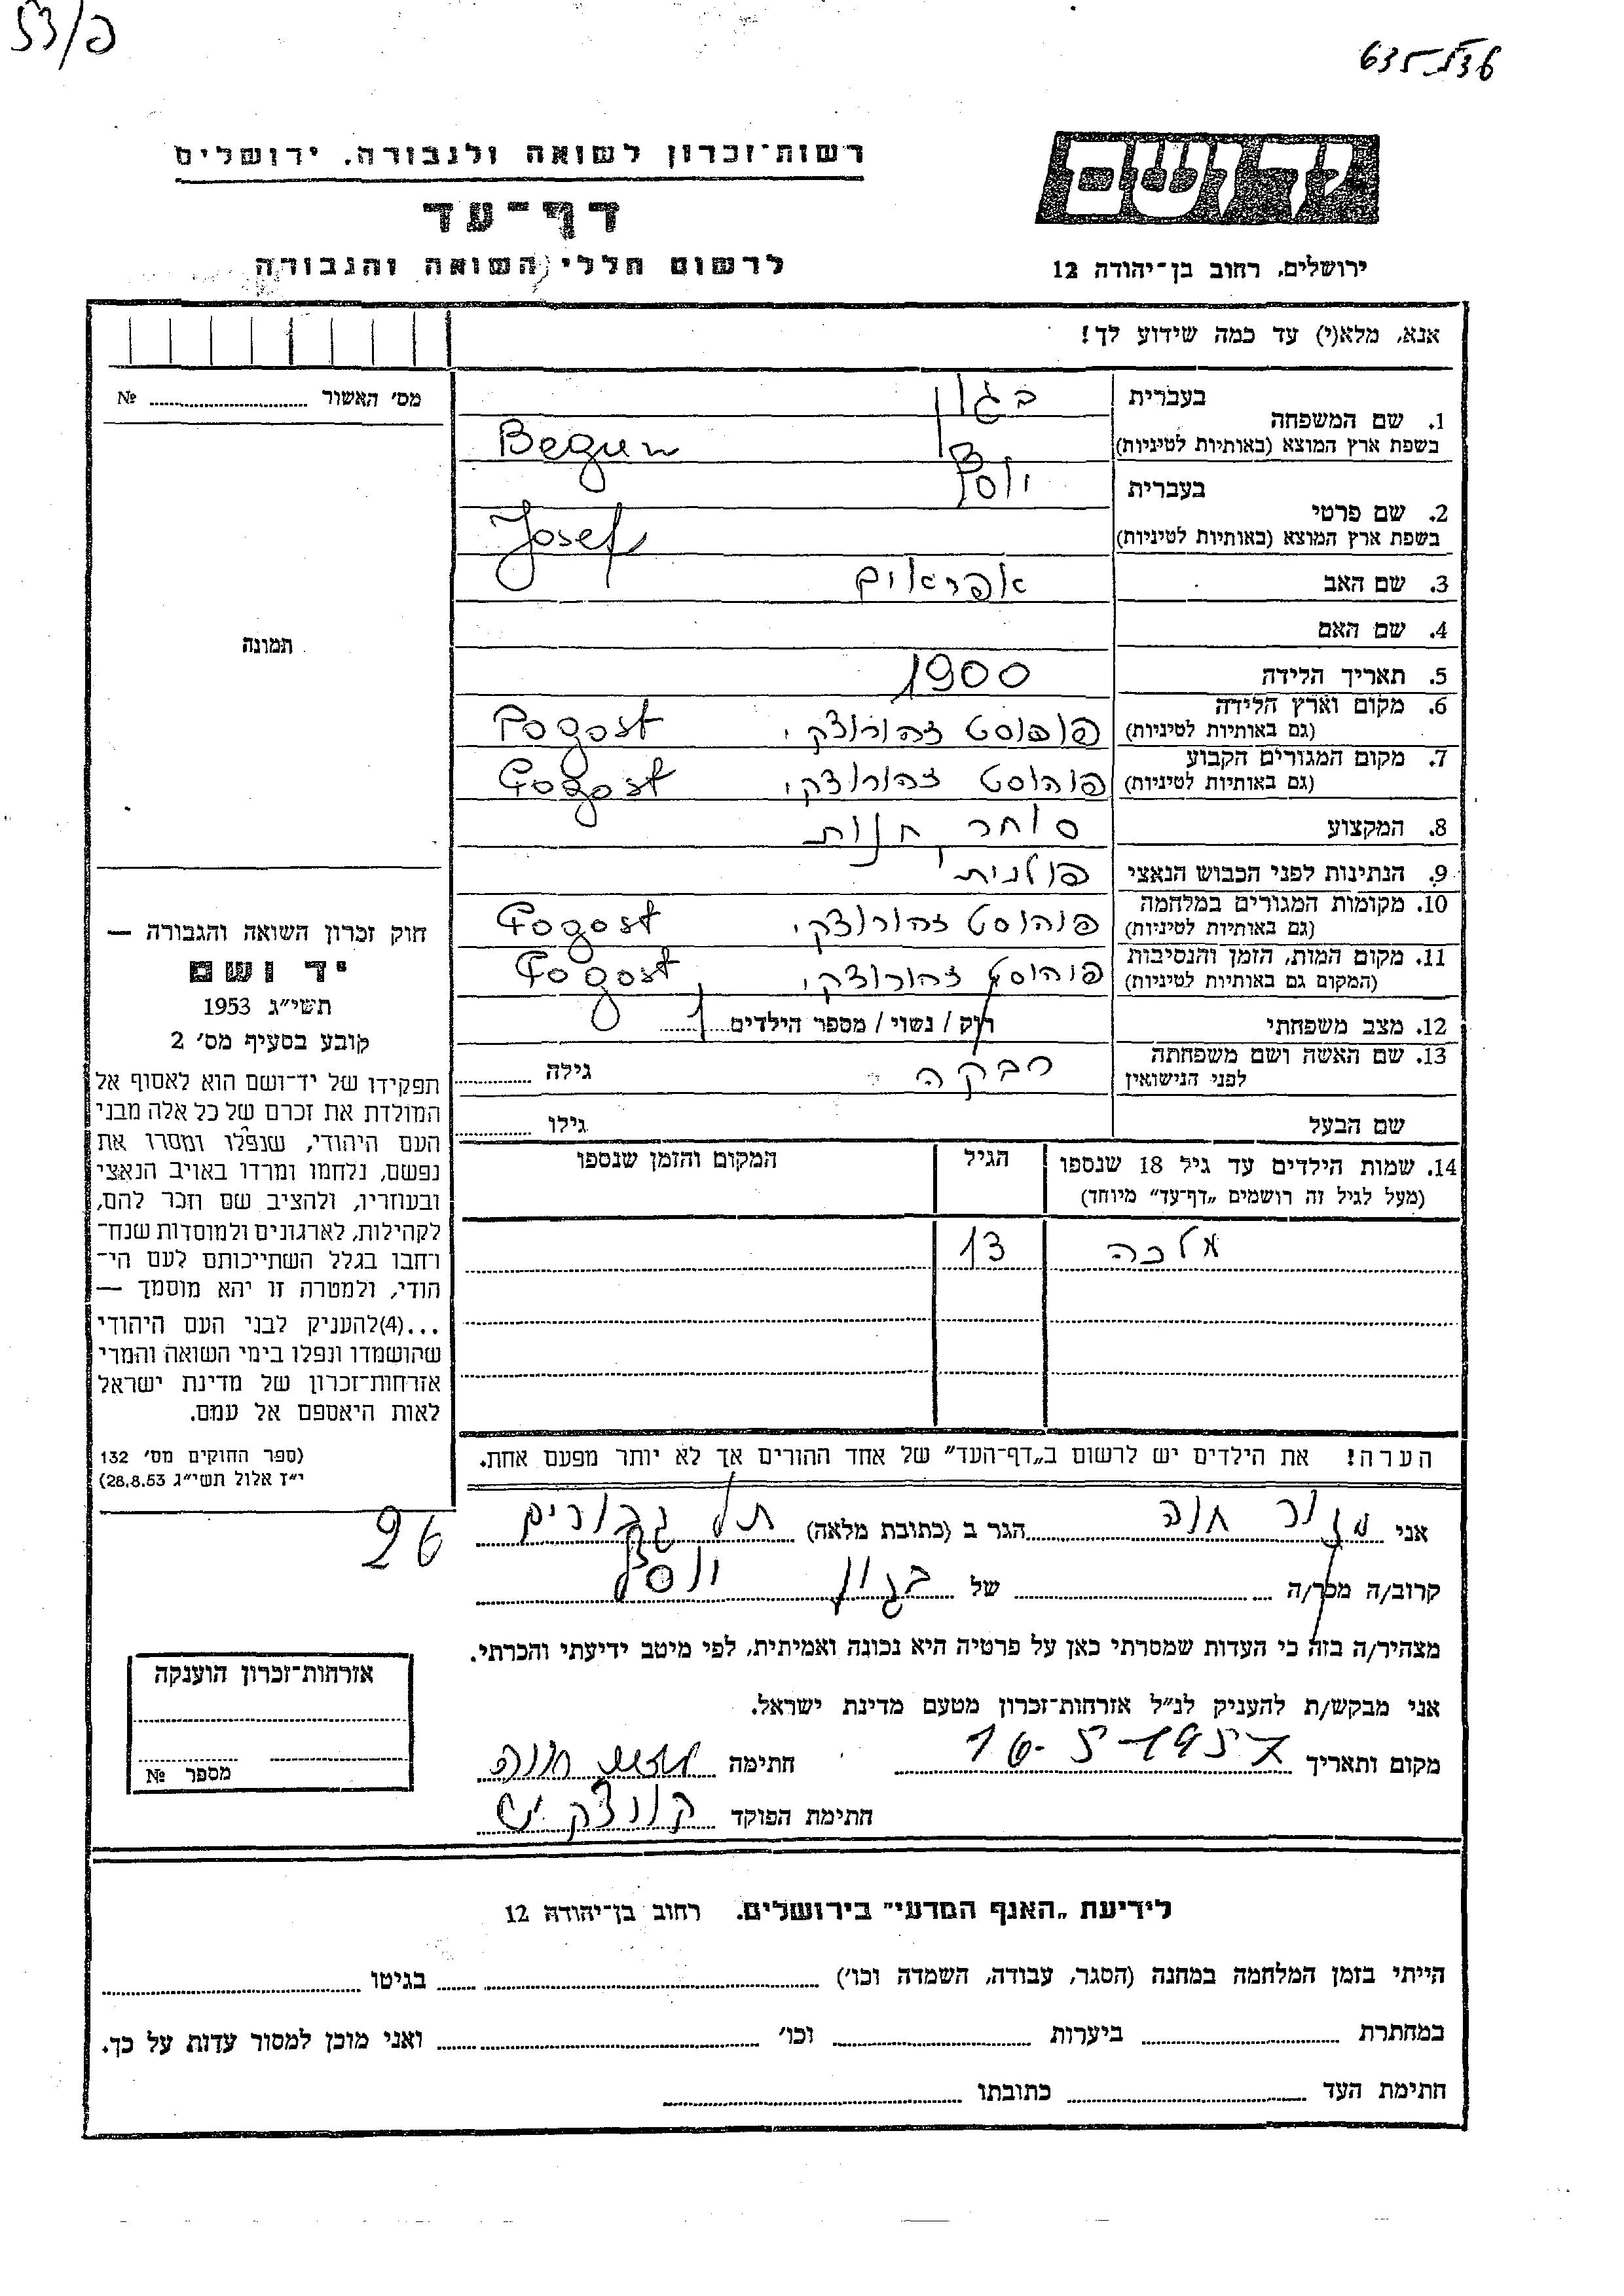 פ/53
635536
יד ושם
ירושלים, רחוב בן־יהודה 12
רשות־זכרון לשואה ולגבורה, ירושלים
דף־עד
לרשום חללי השואה והגבורה
אנא, מלא(י) עד כמה שידוע לך!
1. שם המשפחה בעברית בגון
בשפת ארץ המוצא (באותיות לטיניות) Begun
2. שם פרטי בעברית יוסף
בשפת ארץ המוצא (באותיות לטיניות) Josef
3. שם האב אפראים
4. שם האם
5. תאריך הלידה 1900
6. מקום וארץ הלידה
(גם באותיות לטיניות) זהורוצקי Pogost
7. מקום המגורים הקבוע
(גם באותיות לטיניות) פוהוסט זהורוצקי Pogost
8. המקצוע סוחר חנות
9. הנתינות לפני הכבוש הנאצי פולנית
10. מקומות המגורים במלחמה
(גם באותיות לטיניות) פוהוסט זהורוצקי Pogost
11. מקום המות, הזמן והנסיבות
(המקום גם באותיות לטיניות) פוהוסט זהורוצקי Pogost
12. מצב משפחתי רוק / נשוי / מספר הילדים 1
13. שם האשה ושם משפחתה
לפני הנישואין רבקה גילה
שם הבעל גילו
14. שמות הילדים עד גיל 18 שנספו הגיל המקום והזמן שנספו
(מעל לגיל זה רושמים „דף־עד” מיוחד)
מלכה 13
הערה! את הילדים יש לרשום ב„דף־העד” של אחד ההורים אך לא יותר מפעם אחת.
מס׳ האשור № 
תמונה
חוק זכרון השואה והגבורה —
יד ושם
תשי״ג 1953
קובע בסעיף מס׳ 2
תפקידו של יד־ושם הוא לאסוף אל
המולדת את זכרם של כל אלה מבני
העם היהודי, שנפלו ומסרו את
נפשם, נלחמו ומרדו באויב הנאצי
ובעוזריו, ולהציב שם וזכר להם,
לקהילות, לארגונים ולמוסדות שנח־
רחבו בגלל השתייכותם לעם הי־
הודי, ולמטרה זו יהא מוסמך —
...(4)להעניק לבני העם היהודי
שהושמדו ונפלו בימי השואה והמרי
אזרחות־זכרון של מדינת ישראל
לאות היאספם אל עמם.
(ספר החוקים מס׳ 132
י״ז אלול תשי״ג 28.8.53)
26
אני מזור חוה הגר ב (כתובת מלאה) תל גבורים
קרוב/ה מכר/ה של בגון יוסף
מצהיר/ה בזה כי העדות שמסרתי כאן על פרטיה היא נכונה ואמיתית, לפי מיטב ידיעתי והכרתי.
אני מבקש/ת להעניק לנ״ל אזרחות־זכרון מטעם מדינת ישראל.
מקום ותאריך 16-5-1957 חתימה חוה
חתימת הפוקד
אזרחות־זכרון הוענקה
מספר №
לידיעת „האגף המדעי” בירושלים. רחוב בן־יהודה 12
הייתי בזמן המלחמה במחנה (הסגר, עבודה, השמדה וכו׳) בגיטו
במחתרת ביערות וכו׳ ואני מוכן למסור עדות על כך.
חתימת העד כתובתו